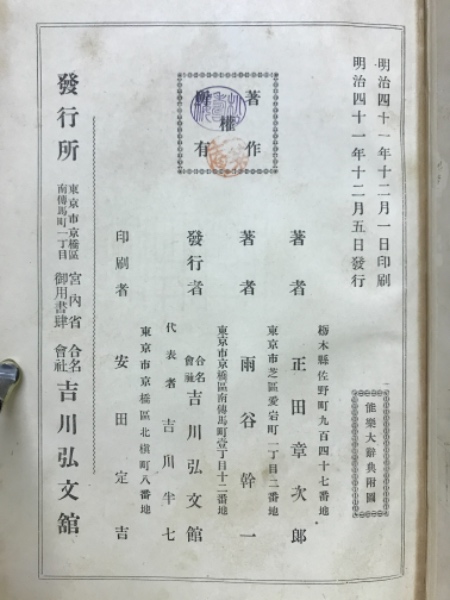 明治四十一年十二月一日印刷
明治四十一年十二月五日發行
能樂大辭典附圖
著作
權
有
栃木縣佐野町九百四十七番地
著者 正田章次郎
東京市芝區愛宕町一丁目二番地
著者 雨谷幹一
東京市京橋區南傳馬町壹丁目十二番地
發行者 合名會社 吉川弘文館
代表者 吉川半七
東京市京橋區北槇町八番地
印刷者 安田定吉
發行所 東京市京橋區南傳馬町一丁目 宮內省御用書肆 合名會社 吉川弘文館